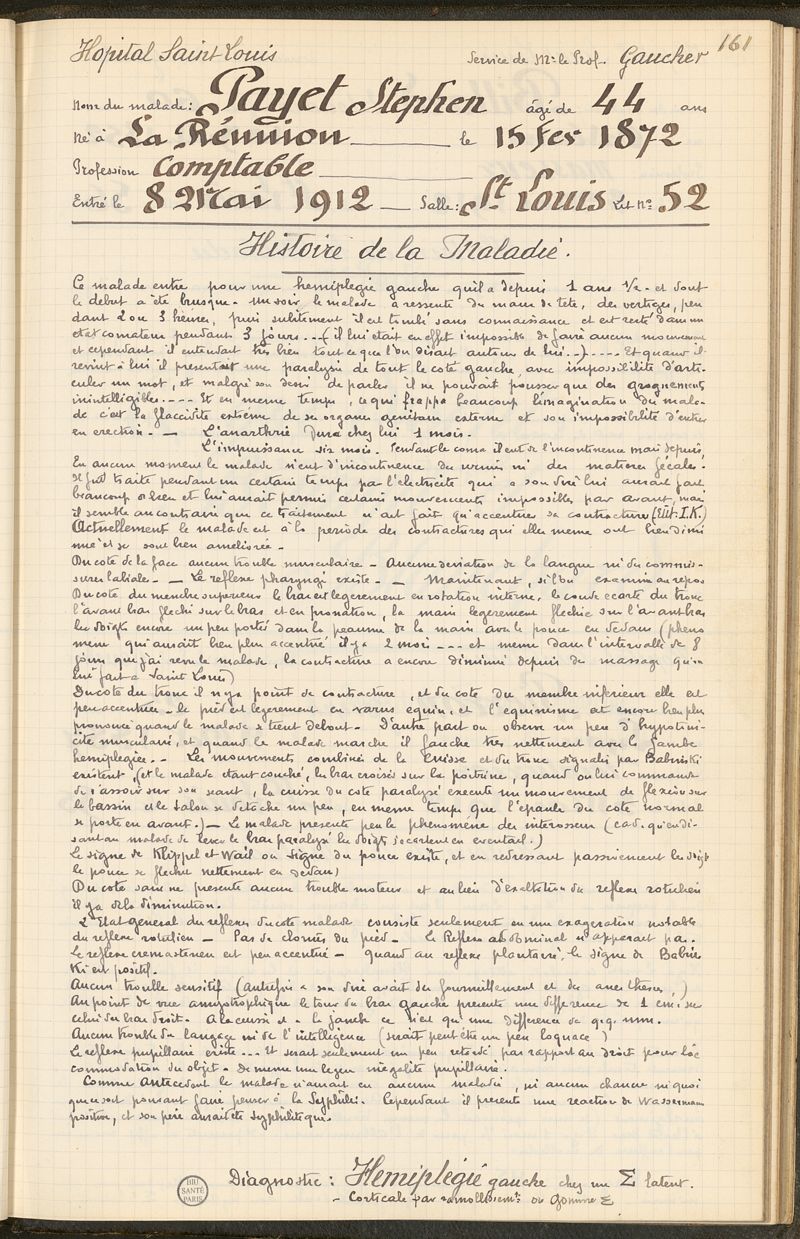 161
Hopital Saint Louis Service de Mr. le Prof. Gaucher
Nom du malade: Payet Stephen âgé de 44 ans
Né à La Réunion le 15 Fev 1872
Profession Comptable
Entré le 8 Mai 1912 Salle: St Louis Lit No 52
Histoire de la Maladie.
Ce malade entre pour une hemiplegie gauche qu'il a depuis 1 ans ½ - et dont
le debut a été brusque - un soir, le malade a ressenti du maux de tête, des vertiges, pen
dant 2 ou 3 heures, puis subitement il est tombé sans connaissance et est resté dans un
etat comateux pendant 3 jours... (il lui était en effet impossible de faire aucun mouvement
et cependant il entendait très bien tout ce que l'on disait autour de lui..) ..... Et quand il
revint à lui il presentait une paralysie de tout le coté gauche, avec impossibilité d'arti-
culer un mot, et malgré son desir de parler il ne pouvait pousser que des grognements
inintelligibles.... Et en meme temps, ce qui frappa beaucoup l'imagination du mala-
de c'est la flaccidité extrême de ses organes genitaux externe et son impossibilité d'entrer
en erection. - L'anarthrie dura chez lui 1 mois.
L'impuissance six mois. Pendant le coma il eut de l'incontinence mais depuis,
En aucun moment le malade n'eut d'incontinence des urines ni des matieres fécales.
Il fut traité pendant un certain temps par l'electricité qui a son dire lui aurait fait
beaucoup de bien et lui aurait permis certains mouvements impossibles par avant, mais
il semble au contraire que ce traitement n'ait fait qu'accentuer sa contracture
Actuellement le malade est à la periode des contractures qui elles meme ont bien dimi
nué et se sont bien ameliorée -
Du coté de la face aucun trouble musculaire - Aucune deviation de la langue ni du commis-
sures labiale. - Le reflexe pharyngé existe. - Maintenant, si l'on examine au repos
Du coté du membre superieur le bras est legerement en rotation interne, le coude ecarté du tronc
l'avant bras flechi sur le bras et en pronation, la main legerement flechie sur l'avant bras
les doigts encore un peu portés dans la paume de la main avec le pouce en dedans (pheno
mene qui aurait bien plus accentué il y a 2 mois --- et meme dans l'intervalle de 8
jours que j'ai revu le malade, la contracture a encore diminué depuis du massage qu'on
lui fait à Saint Louis)
Du coté du tronc il n'y a point de contracture, et du coté du membre inferieur elle est
peu accentuée - le pied est legerement en varus equin, et l'equinisme est encore bien plus
prononcé quand le malade se tient debout. - D'autre part on observe un peu d'hypotoni-
cité musculaire, et quand le malade marche il fauche très nettement avec la jambe
hemiplegiée. - Les mouvements combinés de la cuisse et du tronc signalés par Babinski
existent, (et le malade etant couché, les bras croisés sur la poitrine, quand on lui commande
de s'asseoir sur son seant, la cuisse du coté paralysé execute un mouvement de flexion sur
le bassin et le talon se detache un peu, en meme temps que l'epaule du coté normal
se porte en avant.) - Le malade presente peu le phenomène des interosseux (c.a.d. qu'en di-
sant au malade de lever le bras paralysé les doigts s'ecartent en eventail.)
Le signe de Klippel et Wail ou signe du pouce existe, et en redressant passivement les doigts
le pouce se flechit nettement en dedans)
Du coté sain ne presente aucun trouble moteur et au lieu d'exaltation du reflexe rotulien
il y a de la diminution.
L'Etat general du reflexes du coté malade consiste seulement en une exageration notable
du reflexe rotulien - Pas de clonus du pied. - le Reflexe abdominal n'apparait pas.
Le reflexe cremasterien est peu accentué - quand au reflexe plantaire, le signe de Babins
ki est positif.
Aucun trouble sensitif (autrefois a son dire avait du fourmillement et du anesthesies,)
Au point de vue amyotrophique le tour du bras gauche presente une difference de 1 cm sur
celui du bras droit. - A la cuisse et a la jambe ce n'est qu'une difference de q.q. mm.
Aucun trouble du langage ni de l'intelligence (serait peut être un peu loquace)
Le reflexe pupillaire existe... Et serait seulement un peu retardé par rapport au droit pour l'ac
commodation du objet. - De meme une legere inegalité pupillaire.
Comme Antecedent le malade n'aurait eu aucune maladie, ni aucun chancre ni quoi
que ce soit pouvant faire penser à la Syphilis. Cependant il presente une reaction de Wassermann
positive, et son père aurait été syphilitique.
Diagnostic: Hemiplégie gauche chez un Σ latent.
- Corticale par ramollissemt. ou gomme Σ
BIU
SANTÉ
PARIS